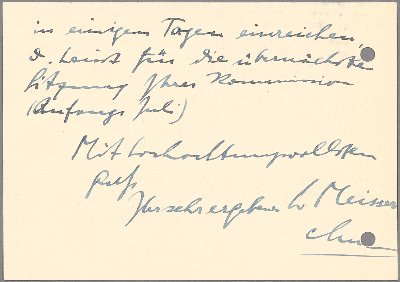 in einigen Tagen einreichen,
für die übernächste
Sitzung Ihrer Kommission
(Anfangs Juli)
Mit hochachtungsvollsten
Gruss
Ihr sehr ergebener Meisser